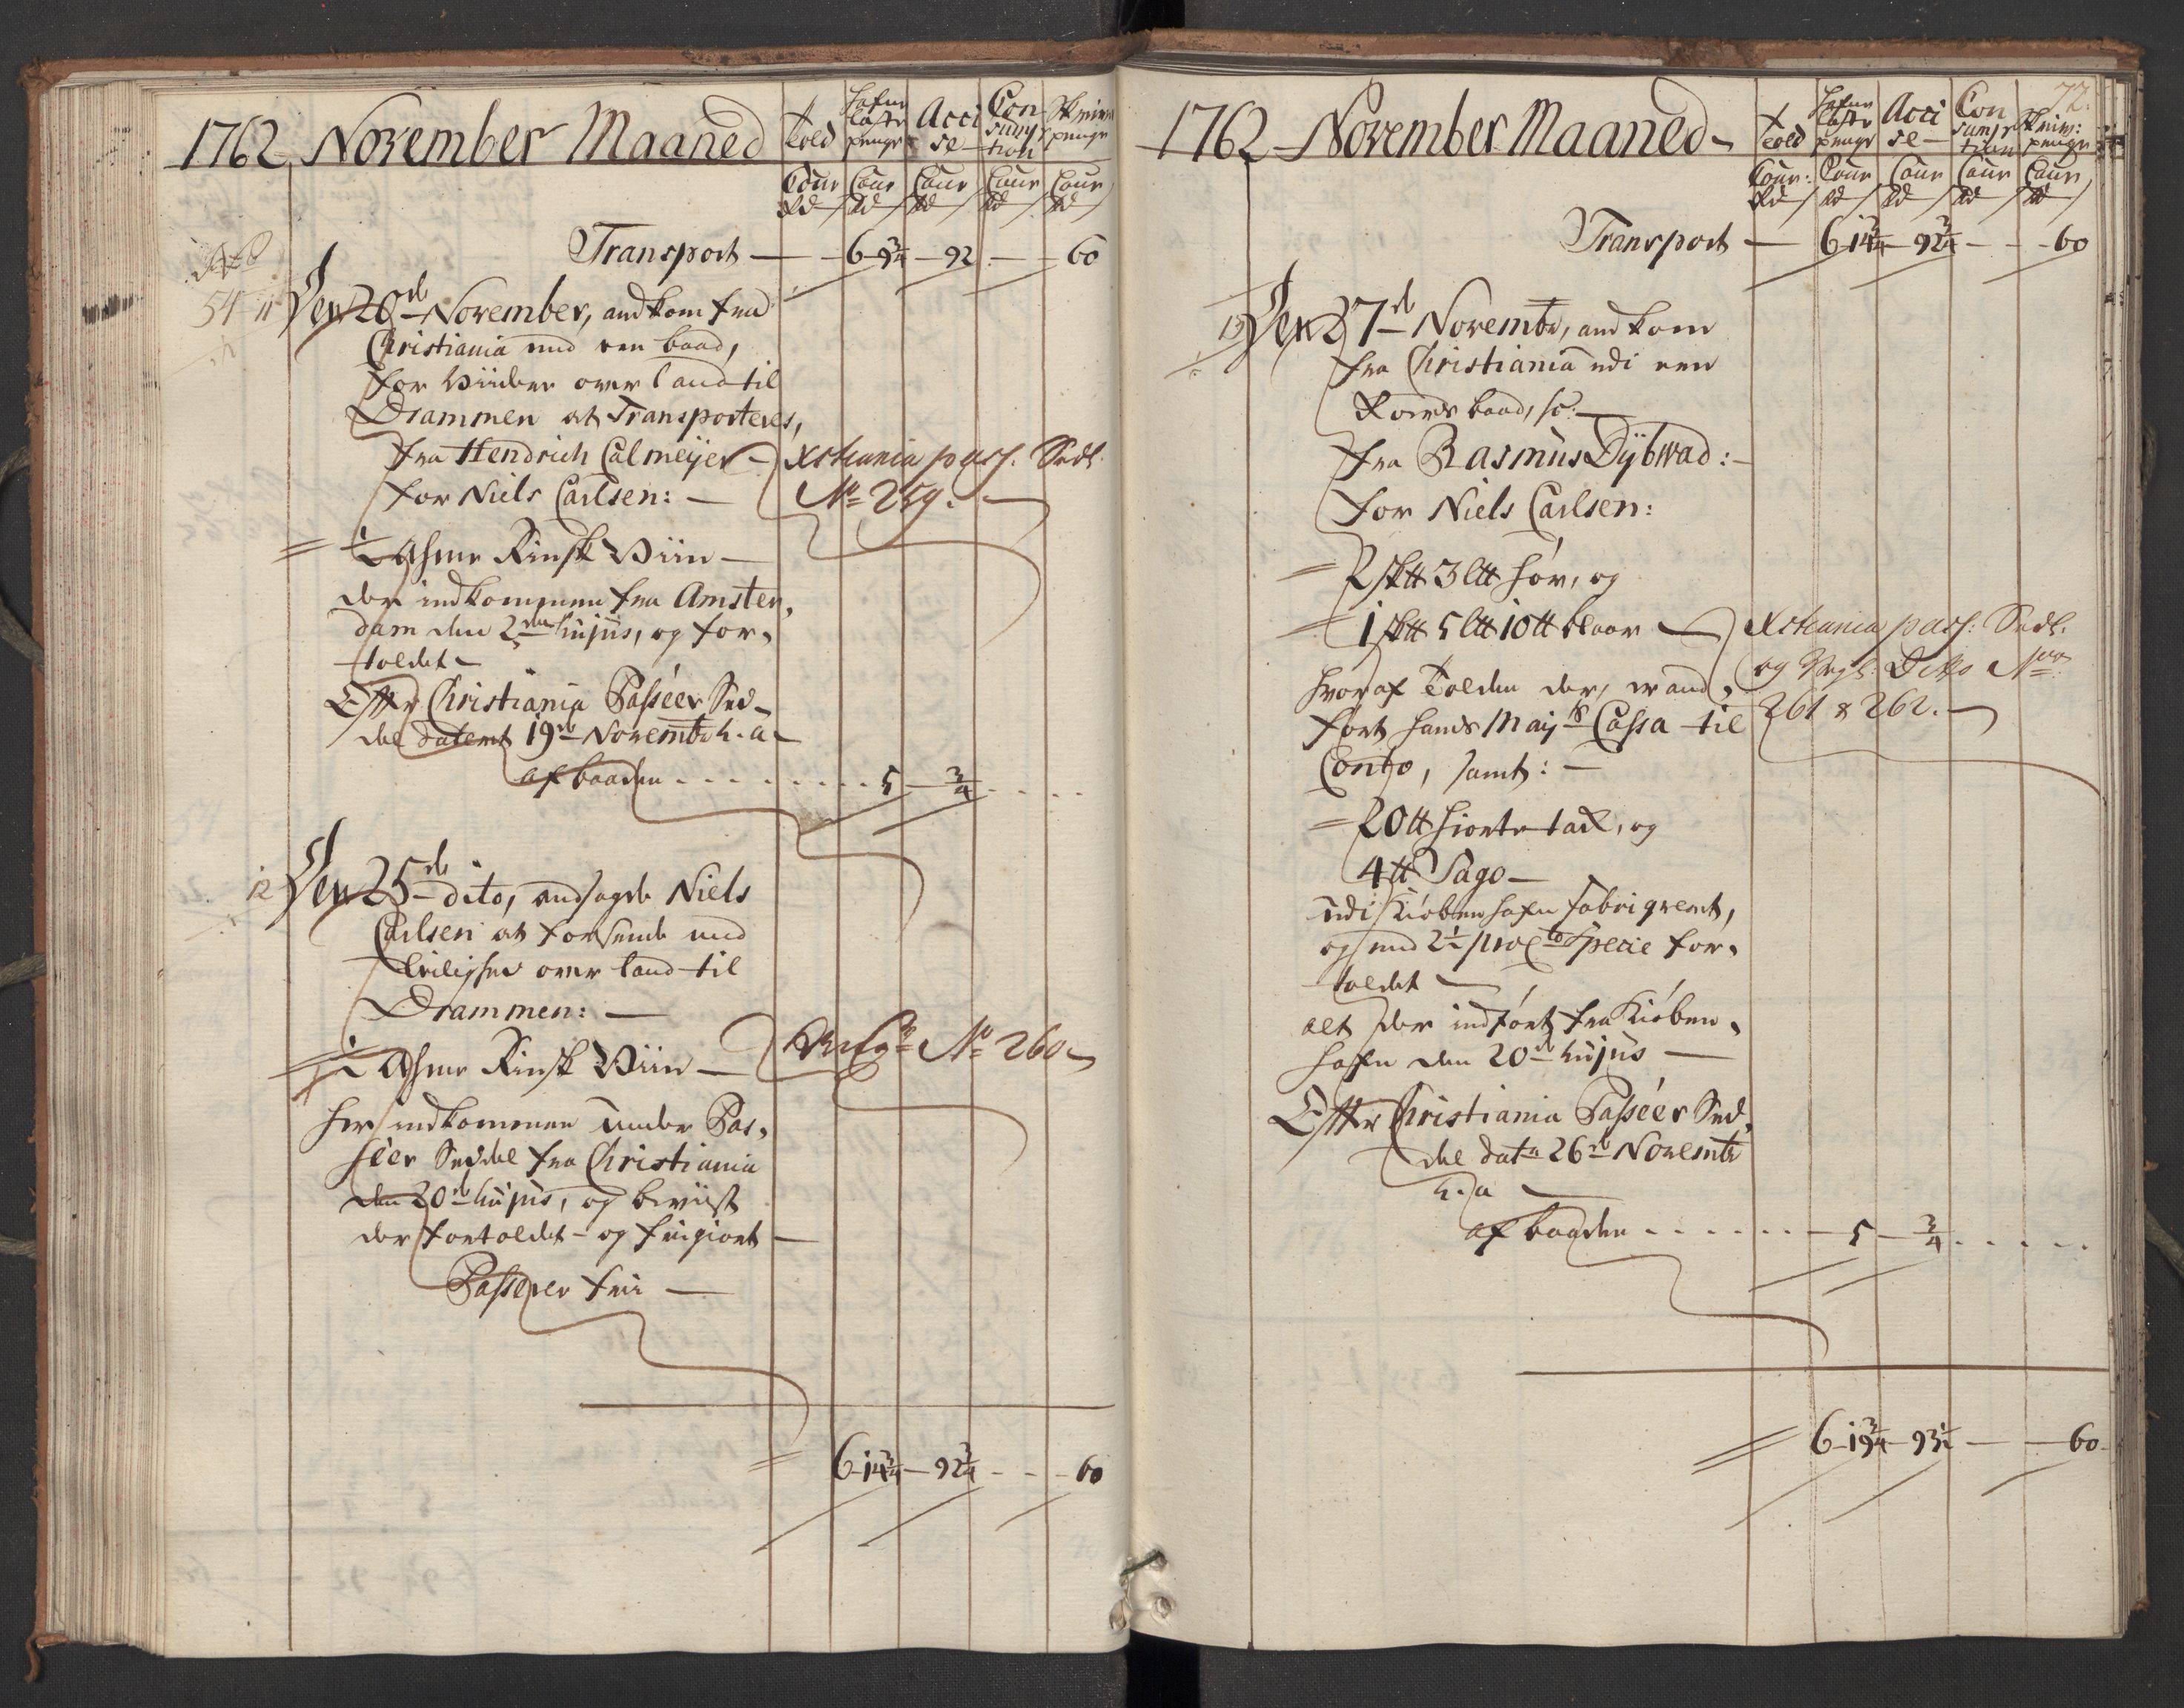 1762 November Maaned
Told
Hafne Laste penge
Acci se
Con sump tion
Skrive penge
Cour Rd
Cour Rd
Cour Rd
Cour Rd
Cour Rd
Transport — 6 - 9 3/4 — 92 — 60
54 11 Den 20de November, andkom fra
Christiania med een baad,
for Viider over land til
Drammen at Transporteres,
fra Hendrich Calmeijer — Xstiania pass. Sedl.
for Niels Carlsen: — No 259.
1 Ahme Rinsk Viin —
der indkommen fra Amster,
dam den 2den hujus, og for,
toldet —
Efter Christiania Passéer Sed-
del dateret 19de Novembr h. a.
af baaden . . . . . . . 5 — 3/4 . . . .
12 Den 25de dito, andsagde Niels
Carlsen at forsende med
leilighed over land til
Drammen: —
1 Ahme Rinsk Viin — No 260
her indkommen under Pas,
séer Seddel fra Christiania
den 20de hujus, og beviist
der fortoldet - og frigiort —
Passerer frie —
6 - 14 3/4 — 92 3/4 - - - 60
72.
1762 November Maaned
Told
Hafne Laste penge
Acci se
Con sump tion
Skriv: penge
Cour: Rd
Cour Rd
Cour Rd
Cour Rd
Cour Rd
Transport — 6 - 14 3/4 — 92 3/4 - - - 60
13 Den 27de Novembr, andkom
fra Christiania udi een
Roers baad, sc:
fra Rasmus Dÿbwad: —
for Niels Carlsen:
2 sktt 3 ltt Hør, og
1 sktt 5 ltt 10 tt blaar — Xstiania pass: Sedl.
hvoraf Tolden der, er and, og Dito Noo
fört hands Maijts Cassa til 261 & 262.
Conto, samt: —
20 tt Hiorte tack, og
4 tt Sago —
udi Kiöbenhafn fabriqueret,
og med 2 1/2 proCto Specie for,
toldet —
alt der indfört fra Kiöben,
hafn den 20de hujus —
Efter Christiania Passéer Sed,
del data 26de Novembr
h. a —
af baaden . . . . . . — 5 — 3/4 . . . . .
6 - 19 3/4 — 93 1/2 — — 60